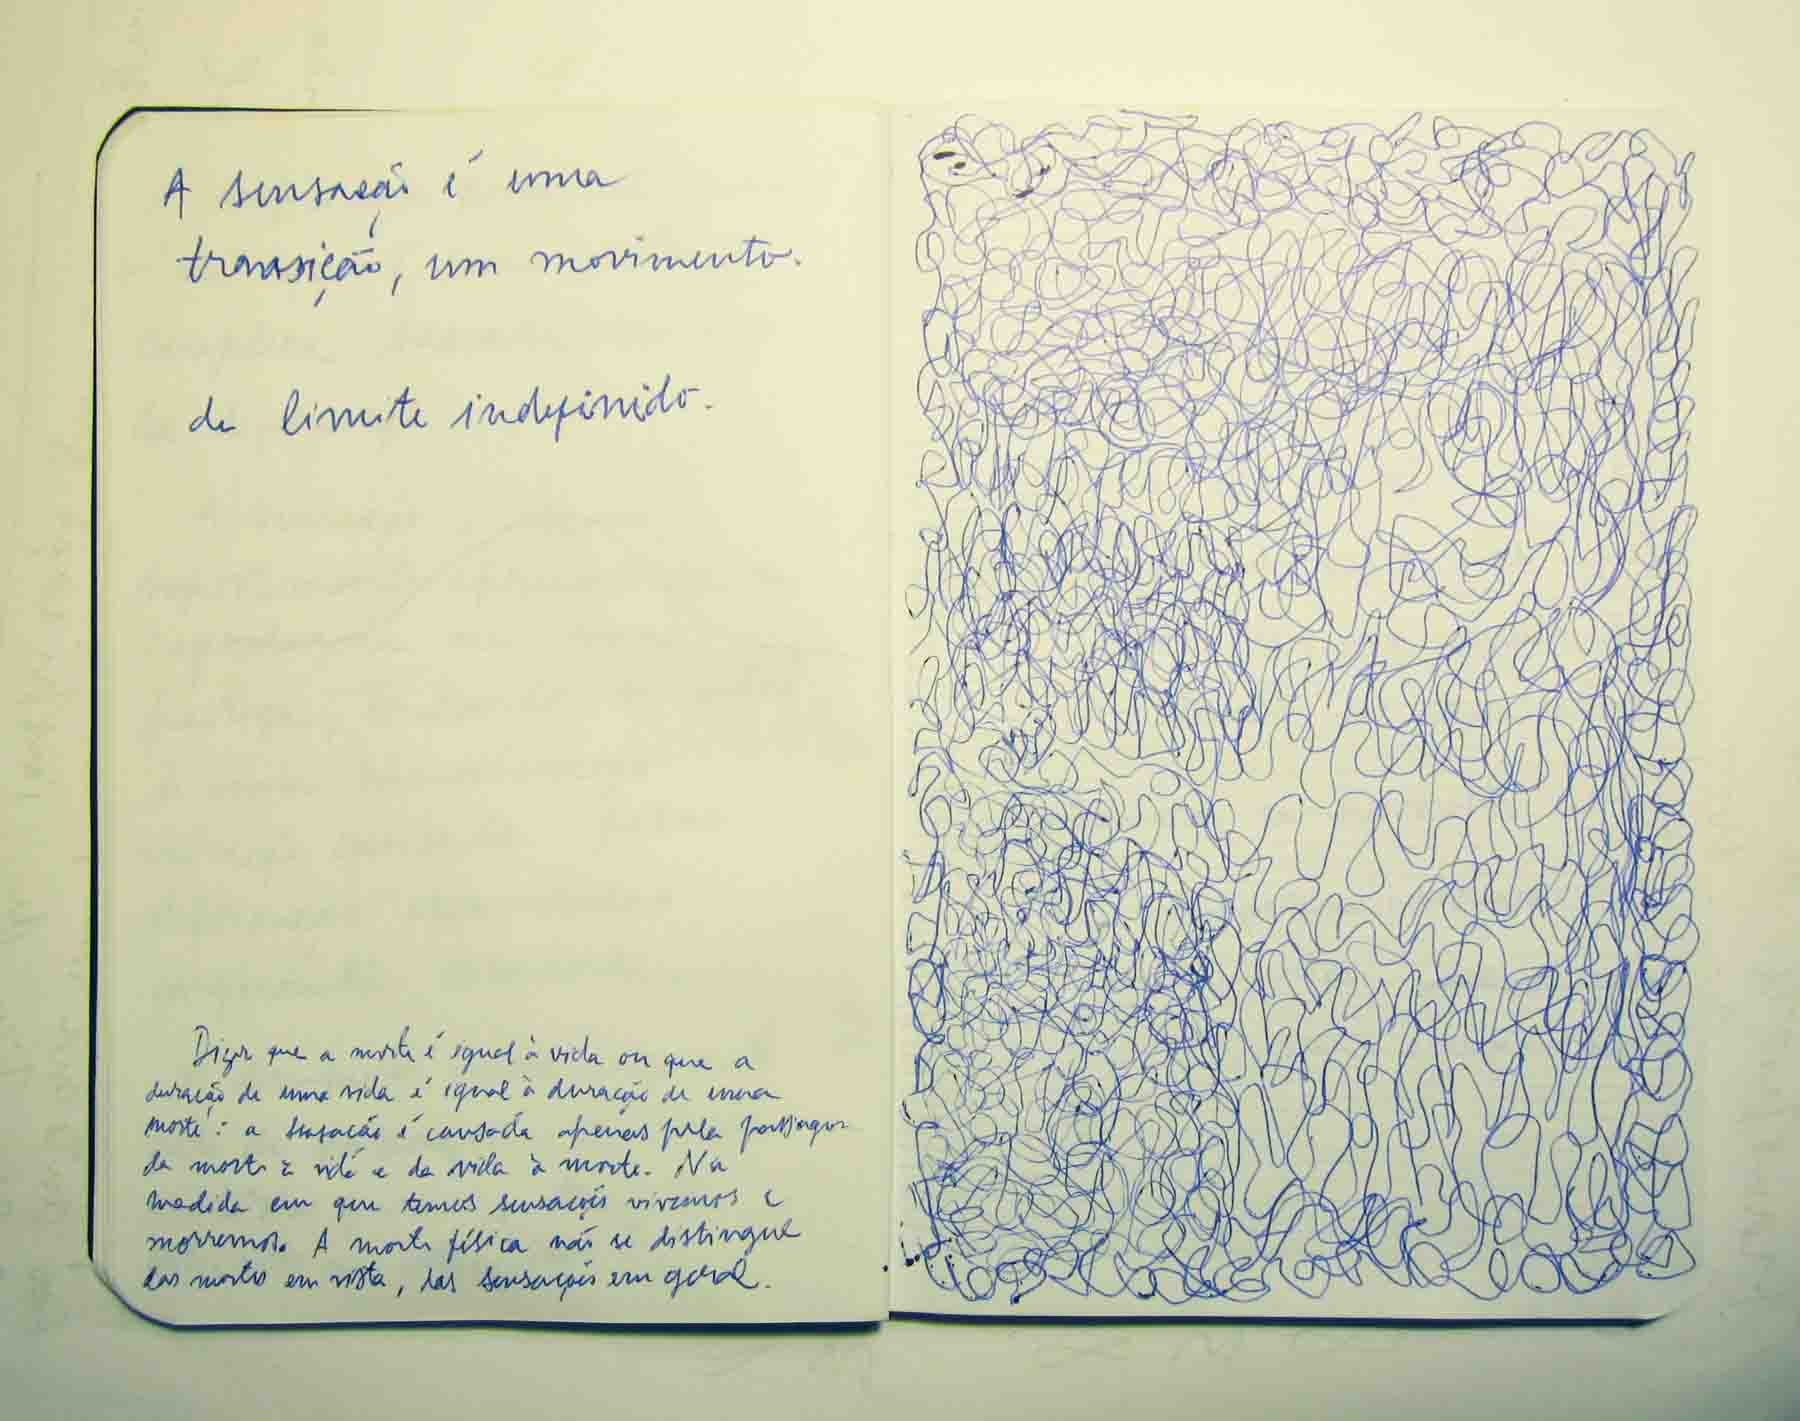 A sensação é uma
transição, um movimento.
de limite indefinido.
Dizer que a morte é igual à vida ou que a
duração de uma vida é igual à duração de uma
morte: a sensação é causada apenas pela passagem
da morte à vida e da vida à morte. Na
medida em que temos sensações vivemos e
morremos. A morte física não se distingue
das mortes em vista, das sensações em geral.